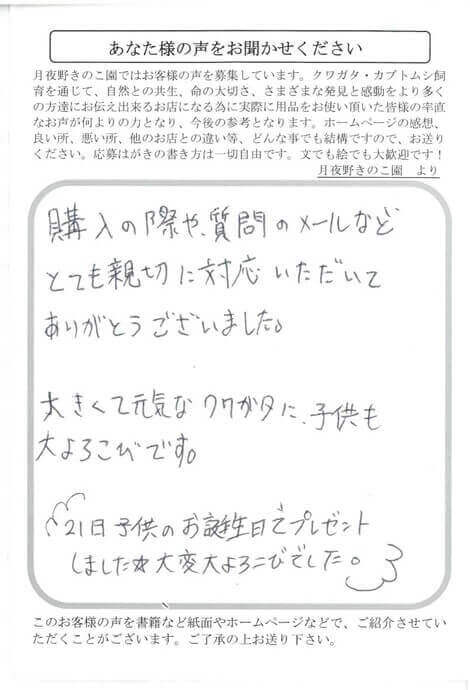 あなた様の声をお聞かせください
月夜野きのこ園ではお客様の声を募集しています。クワガタ・カブトムシ飼
育を通じて、自然との共生、命の大切さ、さまざまな発見と感動をより多く
の方達にお伝え出来るお店になる為に実際に用品をお使い頂いた皆様の率直
なお声が何よりの力となり、今後の参考となります。ホームページの感想、
良い所、悪い所、他のお店との違い等、どんな事でも結構ですので、お送り
ください。応募はがきの書き方は一切自由です。文でも絵でも大歓迎です！
月夜野きのこ園　より
購入の際や、質問のメールなど
とても親切に対応いただいて
ありがとうございました。
大きくて元気なクワガタに、子供も
大よろこびです。
21日子供のお誕生日でプレゼント
しました☆大変大よろこびでした。
このお客様の声を書籍など紙面やホームページなどで、ご紹介させてい
ただくことがございます。ご了承の上お送り下さい。